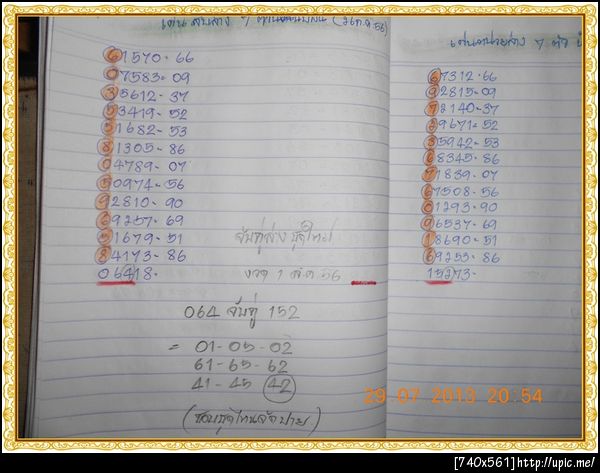 61570-66
07583-09
35612-37
53419-52
51682-53
81305-86
04789-07
50974-56
92810-90
69257-69
51679-51
84173-86
06418-
จับคู่
งวด 1 ส.ค 56
064 จับคู่ 152
= 01-05-02
61-65-62
41-45 42
67312-66
92815-09
72140-37
29671-52
35942-53
68345-86
71839-07
67508-56
01293-90
96537-69
18690-51
69253-86
15273-
29.07.2013 20:54
[740x561]http://upic.me/